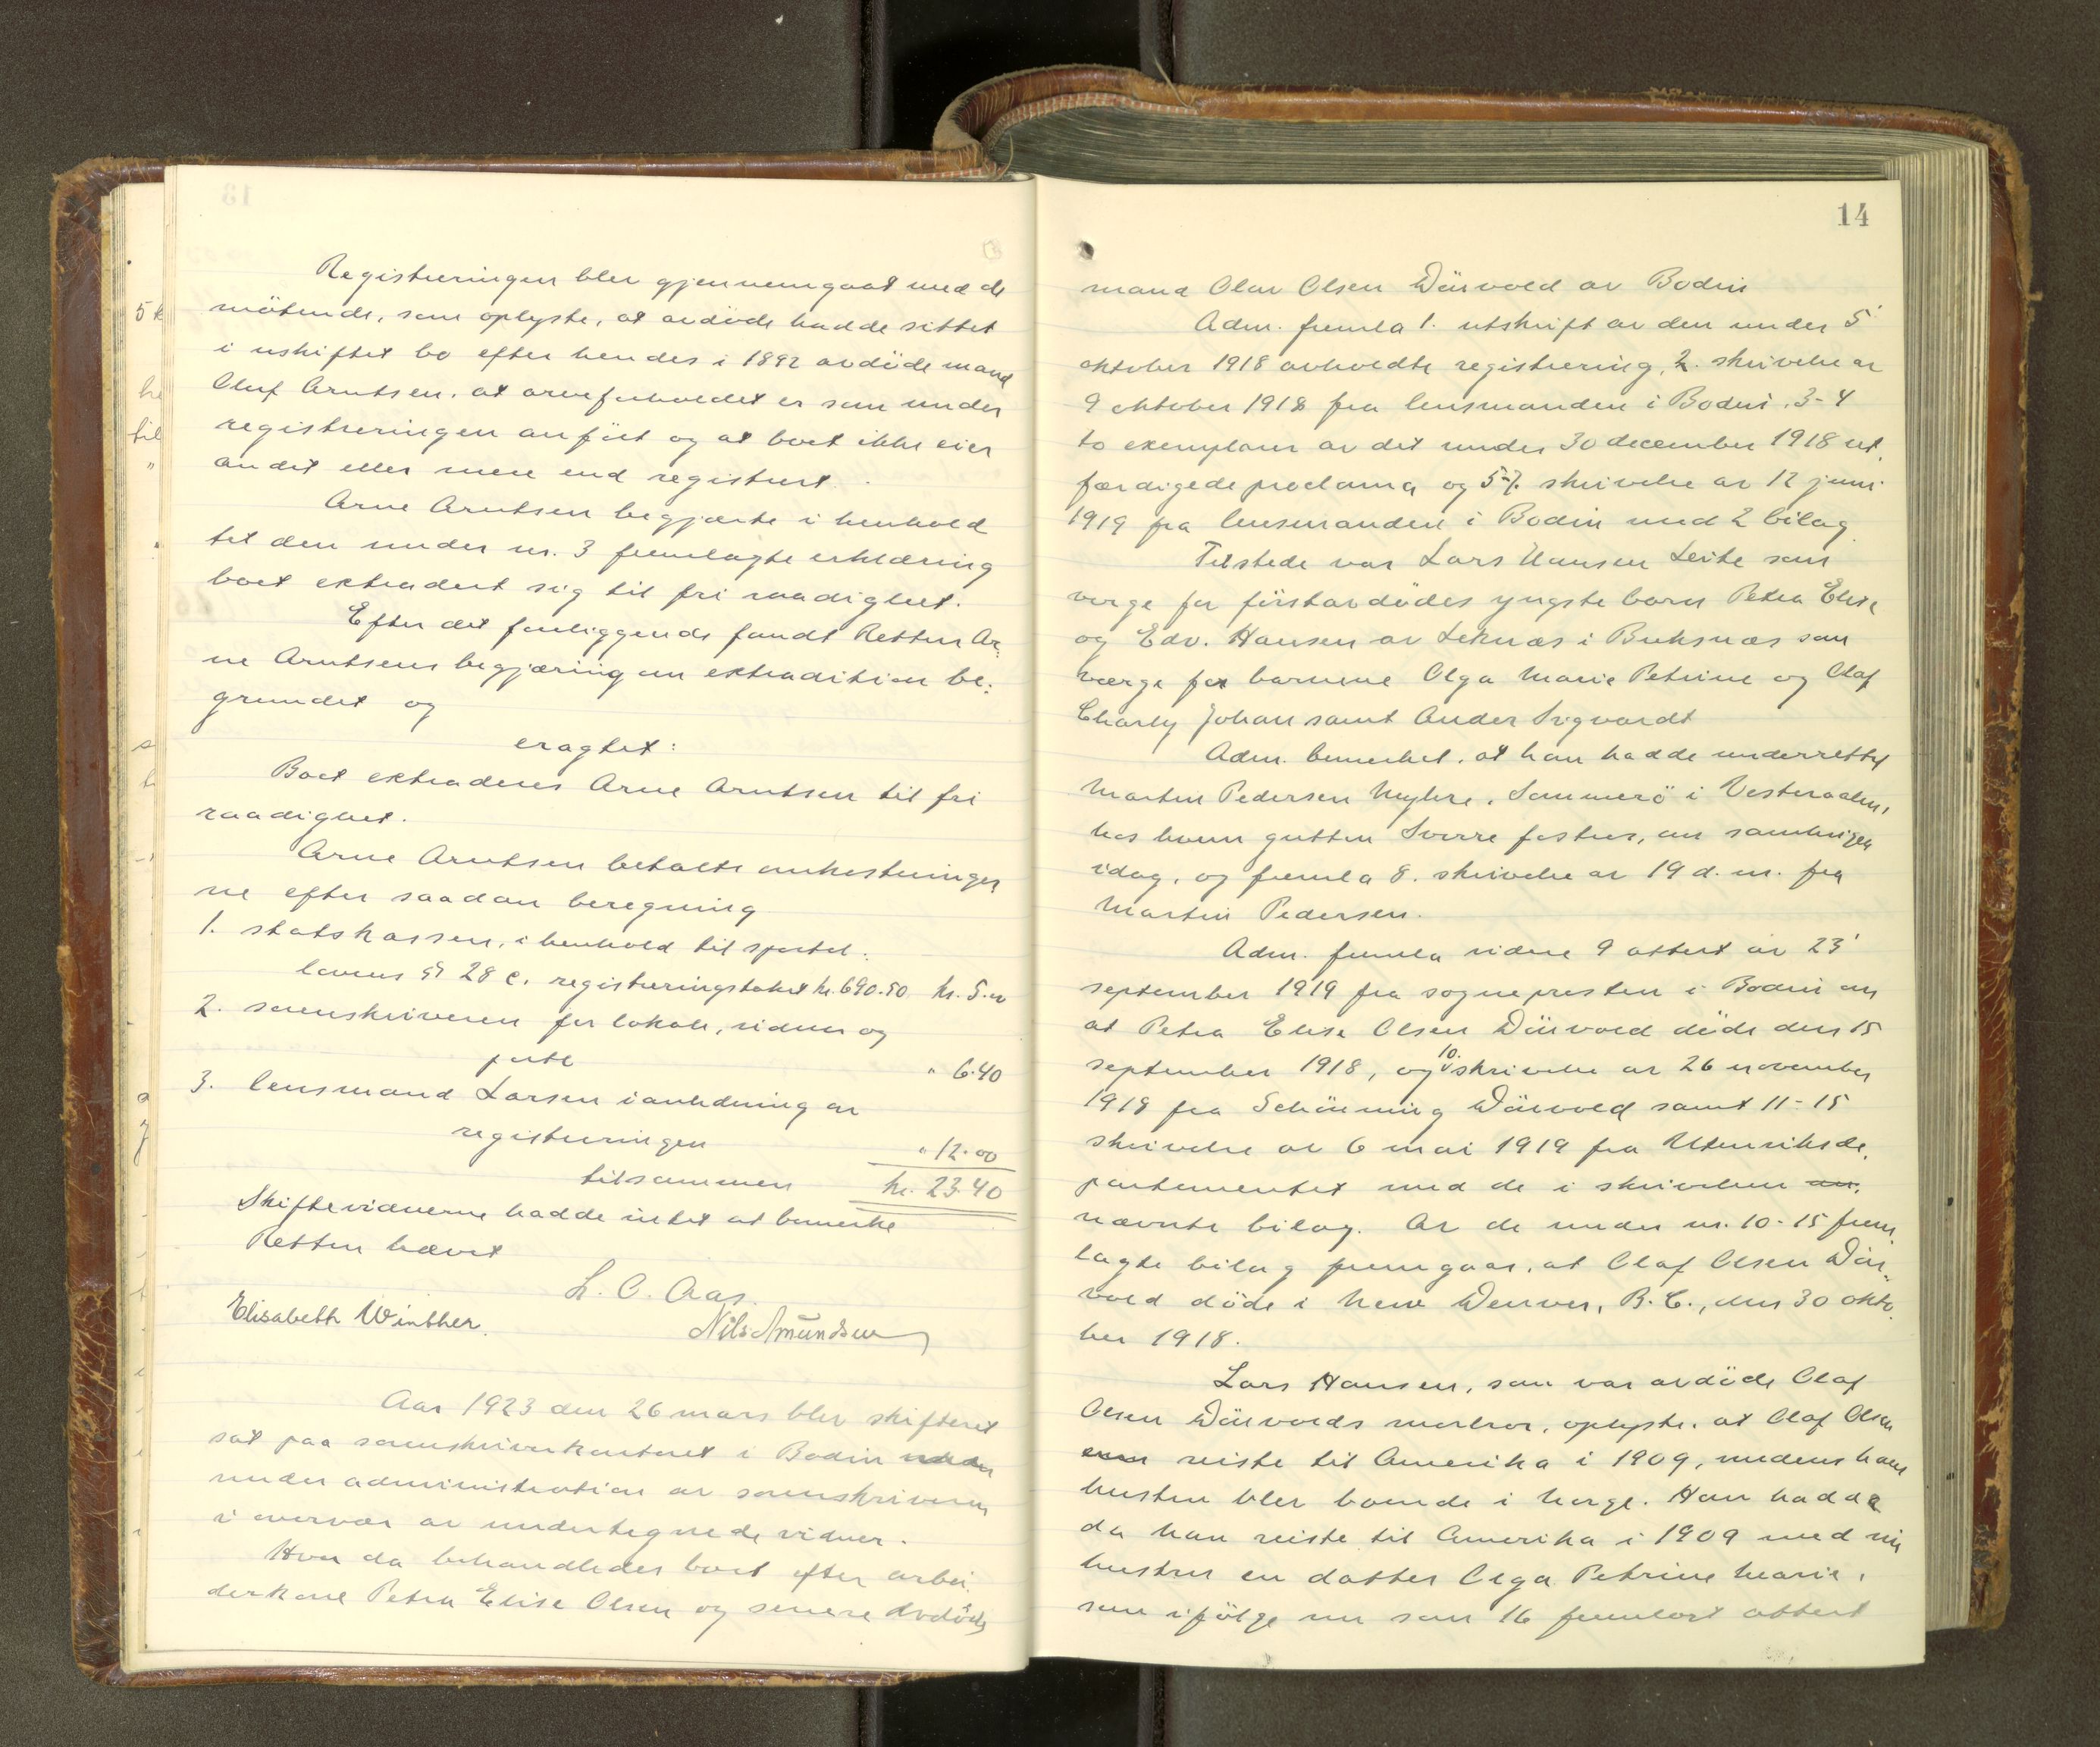 Registreringen blev gjennemgaat med de
mötende, som oplyste, at avdöde hadde sittet
i uskiftet bo efter hendes i 1892 avdöde mand
Oluf Arntsen, at arveforholdet er som under
registreringen anfört og at boet ikke eier
andet eller mere end registrert.
Arne Arntsen begjærte i henhold
til den under nr. 3 fremlagte erklæring
boet extradert sig til fri raadighet.
Efter det foreliggende fandt Retten Ar-
ne Arntsens begjæring om extradition be-
grundet og
eragtet:
Boet extraderes Arne Arntsen til fri
raadighet.
Arne Arntsen betalte omkostninger
ne efter saadan beregning
1. statskassen, i henhold til sportel-
lovens § 28 c. registreringstakst kr. 690.50 kr. 5.00
2. sorenskriveren for lokale, vidner og
porto " 6.40
3. lensmand Larsen i anledning av
registreringen " 12.00
tilsammen kr. 23.40
Skiftevidnerne hadde intet at bemerke
Retten hævet
L. C. Aas.
Elisabeth Winther. Nils Amundsen
Aar 1923 den 26 mars blev skifteret
sat paa sorenskriverkontoret i Bodin
under administration av sorenskriveren
i overvær av undertegnede vidner.
Hvor da behandledes boet efter arbei-
derkone Petra Elise Olsen og senere avdöde
14
mand Olav Olsen Däivold av Bodin
Adm. fremla 1. utskrift av den under 5'
oktober 1918 avholdte registrering, 2. skrivelse av
9 oktober 1918 fra lensmanden i Bodin, 3-4
to exemplarer av det under 30 december 1918 ut-
færdigede proclama og 5-7. skrivelse av 12 juni
1919 fra lensmanden i Bodin med 2 bilag
Tilstede var Lars Hansen Leite som
verge for förstavdödes yngste barn Petra Elise
og Edv. Hansen av Leknæs i Buksnæs som
værge for barnene Olga Marie Petrine og Olaf
Charly Johan samt Ander Sigvardt
Adm. bemerket, at han hadde underrettet
Martin Pedersen Myhre, Sommerö i Vesteraalen,
hos hvem gutten Sverre fostres, om samlingen
idag, og fremla 8. skrivelse av 19 d. m. fra
Martin Pedersen.
Adm. fremla videre 9 attest av 23'
september 1919 fra sognepresten i Bodin om
at Petra Elise Olsen Däivold döde den 15
september 1918, og 10. skrivelse av 26 november
1918 fra Schönning Däivold samt 11-15
skrivelse av 6 mai 1919 fra Utenriksde-
partementet med de i skrivelsen an,
nævnte bilag. Av de under nr. 10-15 frem
lagte bilag fremgaar, at Olaf Olsen Däi-
vold döde i New Denver, B.C., den 30 okto-
ber 1918.
Lars Hansen, som var avdöde Olaf
Olsen Däivolds morbror, oplyste, at Olaf Olsen
reiste til Amerika i 1909, medens hans
hustru blev boende i Norge. Han hadde
da han reiste til Amerika i 1909 med sin
hustru en datter Olga Petrine Marie,
som ifölge nu som 16 fremlagt attest